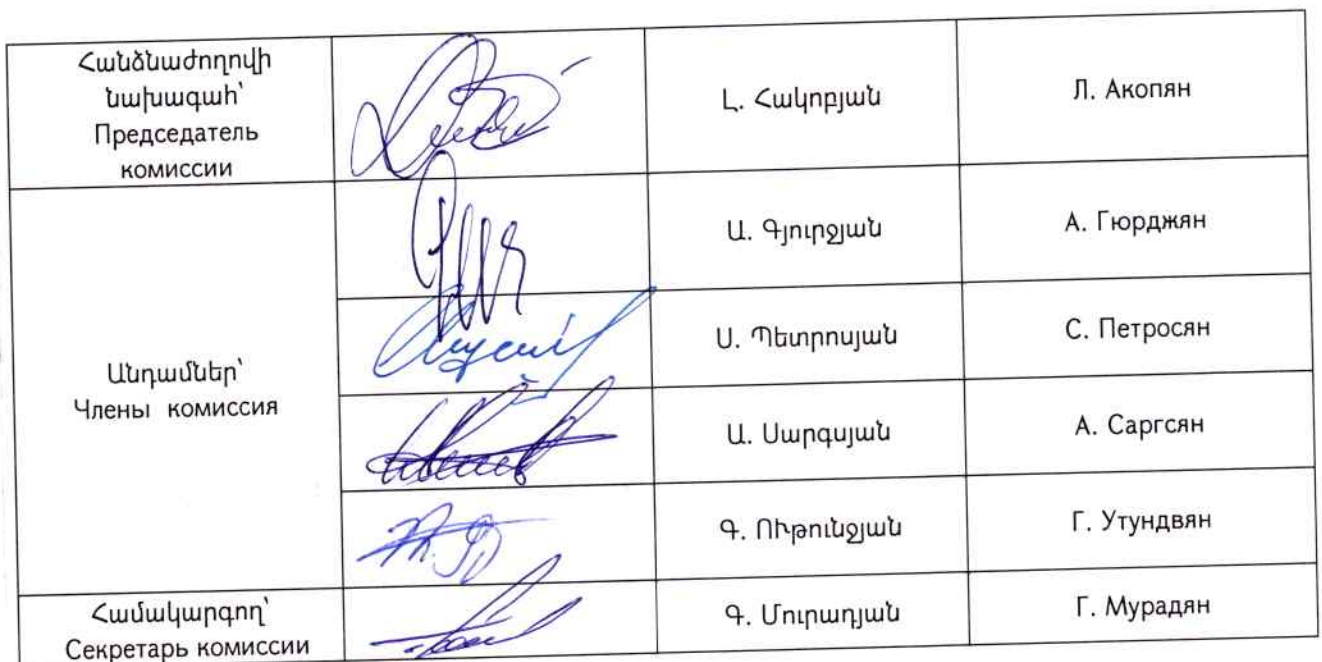 Հանձնաժողովի
նախագահ՝
Председатель
комиссии
Լ. Հակոբյան
Л. Акопян
Անդամներ՝
Члены комиссия
Ա. Գյուրջյան
А. Гюрджян
Ս. Պետրոսյան
С. Петросян
Ա. Սարգսյան
А. Саргсян
Գ. ՈՒթունջյան
Г. Утундвян
Համակարգող՝
Секретарь комиссии
Գ. Մուրադյան
Г. Мурадян